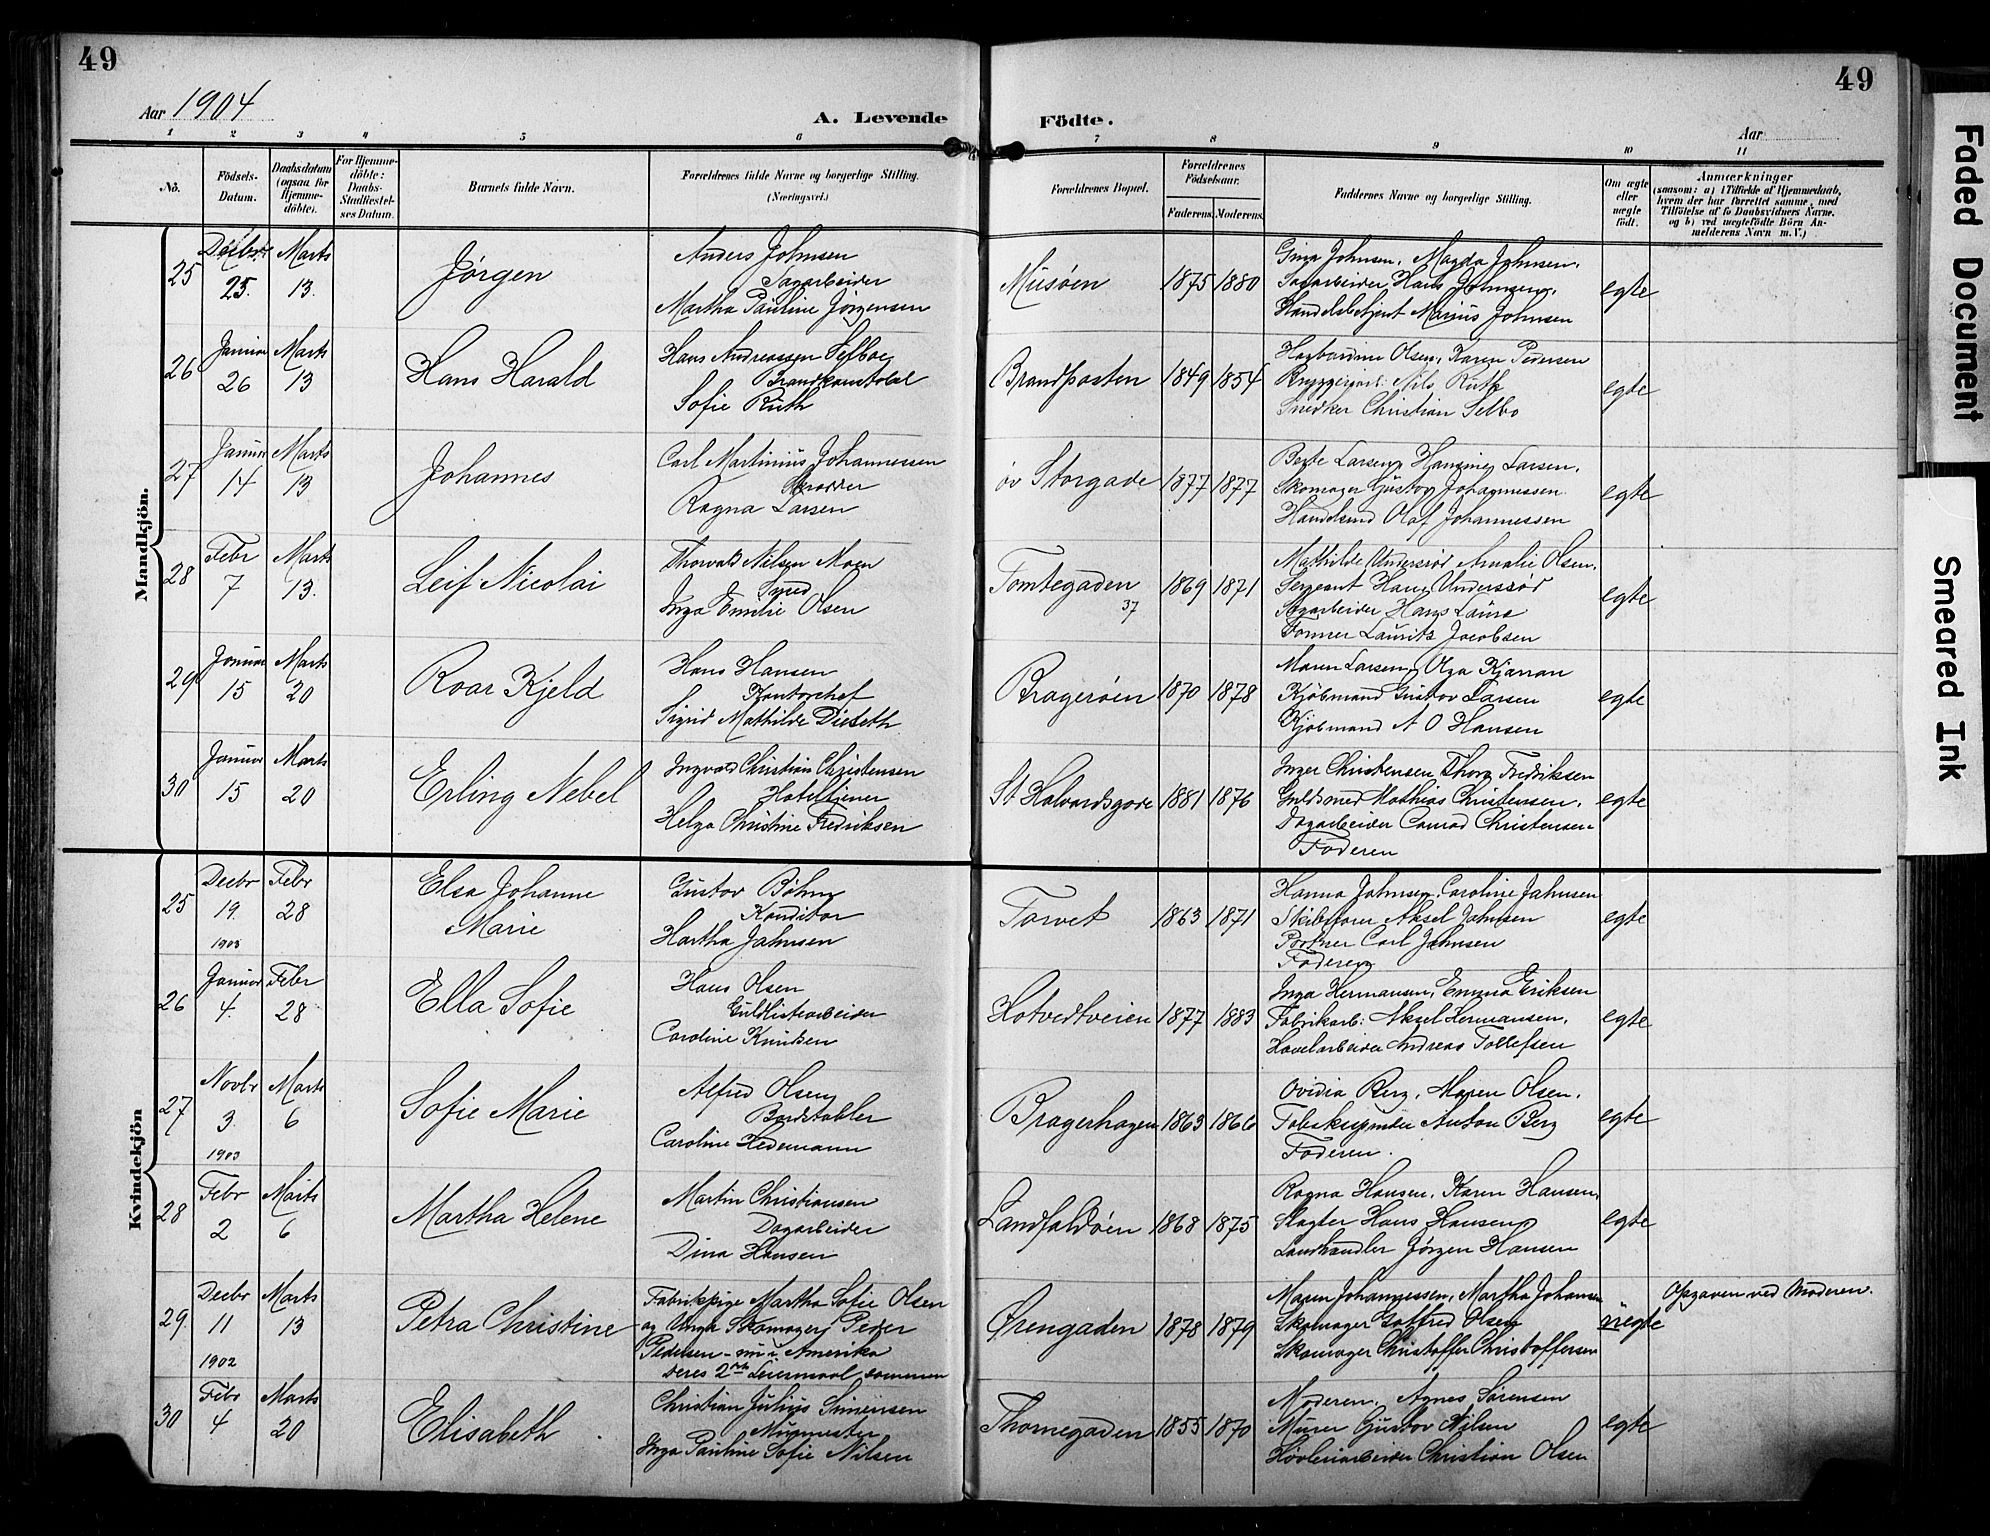 49
49
Aar 1904
A. Levende
Födte.
Aar
1 2 3 4 5 6 7 8 9 10 11
No.
Födsels-Datum.
Daabsdatum (ogsaa for Hjemme-döbte).
For Hjemme-döbte: Daabs-Stadfæstel-ses Datum.
Barnets fulde Navn.
Forældrenes fulde Navne og borgerlige Stilling.
(Næringsvei.)
Forældrenes Bopæl.
Forældrenes Födselsaar.
Faderens. Moderens.
Faddernes Navne og borgerlige Stilling.
Om ægte eller uægte födt.
Anmærkninger
(saasom: a) i Tilfælde af Hjemmedaab, hvem der har forrettet samme, med Tilföielse af to Daabsvidners Navne. og b) ved uægtefödte Börn An-melderens Navn m. V.)
Mandkjön.
25 Decbr 25. Marts 13. Jørgen
Anders Johnsen
Sagarbeider
Martha Pauline Jørgensen
Musøen 1875 1880
Gina Johnsen, Magda Johnsen,
Sagarbeider Hans Johnsen,
Handelsbetjent Marius Johnsen
egte
26 Januar 26 Marts 13 Hans Harald
Hans Andreassen Selboe
Brandkonstabel
Sofie Ruth
Brandposten 1849 1854
Hagbardine Olsen, Karen Pedersen
Bryggeriarb: Nils Ruth
Snedker Christian Selbo
egte
27 Januar 14 Marts 13 Johannes
Carl Martinius Johannessen
Skrædder
Ragna Larsen
øv Storgade 1877 1877
Berte Larsen, Hansine Larsen,
Skomager Gustav Johannessen
Handelsmd Olaf Johannessen
egte
28 Febr 7 Marts 13. Leif Nicolai
Thorvald Nilsen Moen
Smed
Inga Emilie Olsen
Tomtegaden 37 1869 1871
Mathilde Underssrød Amalie Olsen,
Sergeant Hans Underssrød
Sagarbeider Hans Laurs
Former Lauritz Jacobsen
egte
29 Januar 15 Marts 20 Roar Kjeld
Hans Hansen
Kontorchef
Sigrid Mathilde Dieseth
Bragerøen 1870 1878
Maren Larsen, Olga Kjarran
Kjøbmand Gustav Larsen
Kjøbmand A O Hansen
egte
30 Januar 15 Marts 20 Erling Nebel
Ingvald Christian Christensen
Hoteltjener
Helga Christine Fredriksen
St Halvardsgade 1881 1876
Inger Christensen Thora Fredriksen
Guldsmed Mathias Christensen,
Dagarbeider Conrad Christensen
Faderen
egte
Kvindekjön
25 Decbr 19. 1903 Febr 28 Elsa Johanne Marie
Gustav Bøhm
Konditor
Hartha Jahnsen
Torvet 1863 1871
Hanna Jahnsen, Caroline Jahnsen
Skibsfører Aksel Jahnsen
Portner Carl Jahnsen
Faderen
egte
26 Januar 4. Febr 28 Ella Sofie
Hans Olsen
Guldlistearbeider
Caroline Knudsen
Hotvedtveien 1877 1883
Inga Hermansen, Emma Eriksen
Fabrikarb: Aksel Hermansen,
Havelarbeider Andreas Tollefsen
egte
27 Novbr 3. 1903 Marts 6 Sofie Marie
Alfred Olsen
Bordstabler
Caroline Hedemann
Bragerhagen 1863 1866
Ovidia Berg, Maren Olsen,
Tobakspinder Anton Berg
Faderen.
egte
28 Febr 2 Marts 6 Martha Helene
Martin Christiansen
Dagarbeider
Dina Hansen
Landfaldøen 1868 1875
Ragna Hansen, Karen Hansen,
Slagter Hans Hansen
Landhandler Jørgen Hansen
egte
29. Decbr 11 1902 Marts 13 Petra Christine
Fabrikpige Martha Sofie Olsen
og Ungk Skomager Peder
Pedersen - nu i Amerika
deres 2det Leiermaal sammen
Ørengaden 1878 1879
Maren Johannessen, Martha Johansen
Skomager Gotfred Olsen
Skomager Christoffer Christoffersen
uegte
Opgaven ved Moderen.
30 Febr 4 Marts 20 Elisabeth
Christian Julius Simensen
Murmester
Inga Pauline Sofie Nilsen
Thornegaden 1855 1870
Moderen, Agnes Sørensen
Murer Gustav Nilsen
Høvleriarbeider Christian Olsen
egte
Faded Document
Smeared Ink